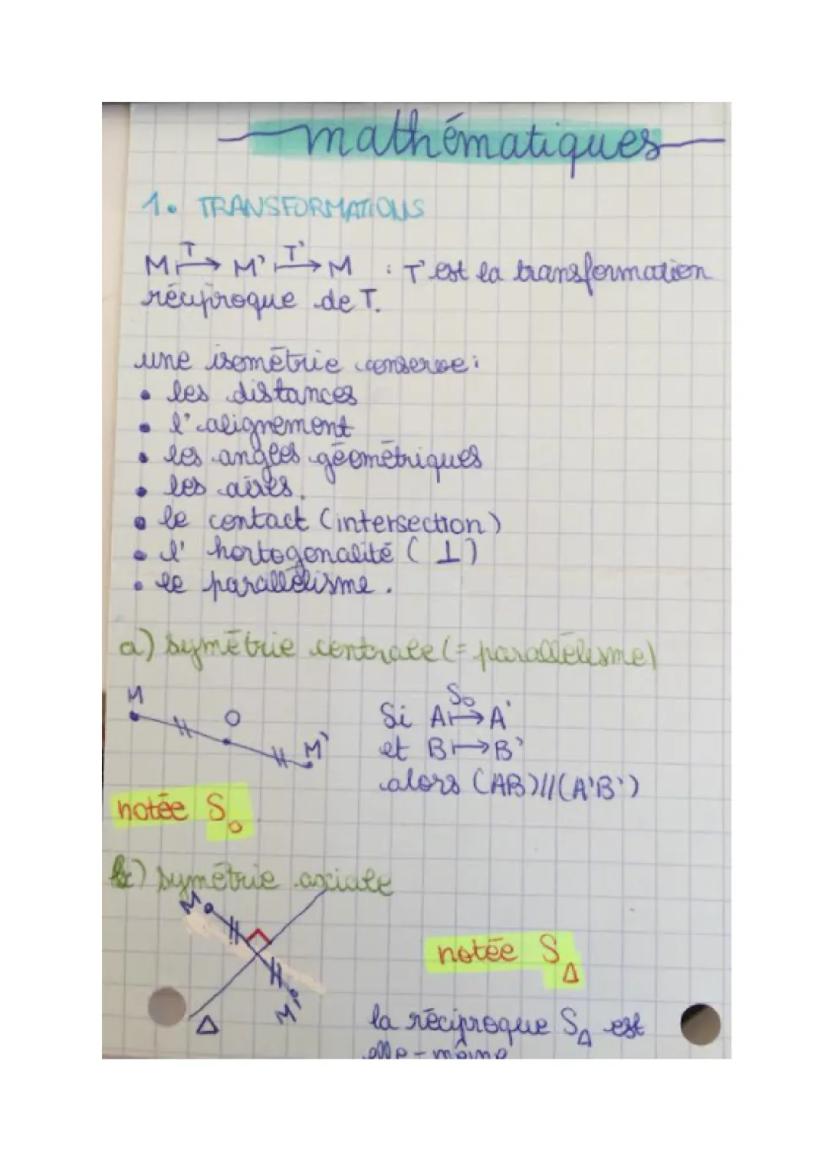 mathématiques
1. TRANSFORMATIONS
M T↦ M' T'↦ M : T' est la transformation
réciproque de T.
une isométrie conserve :
• les distances
• l'alignement
• les angles géométriques
• les aires.
• le contact (intersection)
• l'hortogonalité (⊥)
• le parallélisme.
a) symétrie centrale (= parallélisme)
M
O
M'
Si A S₀↦ A'
et B ↦ B'
alors (AB)//(A'B')
notée S₀
b) symétrie axiale
M
M'
Δ
notée S_Δ
la réciproque S_Δ est
elle-même